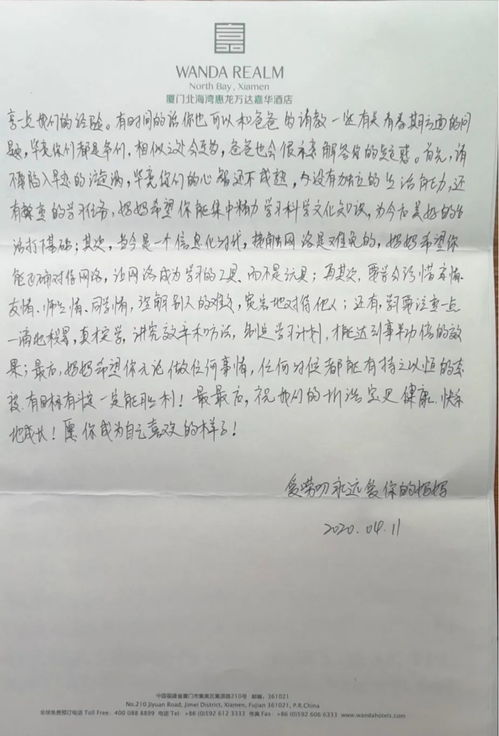 WANDA REALM
North Bay, Xiamen
厦门北海湾惠龙万达嘉华酒店
享一点我们的经验。有时间的话你也可以和爸爸的请教一些有关青春期方面的问
题,毕竟你们都是男们,相似之处会更多,爸爸也会很乐意解答你的疑惑。首先,请
不要陷入早恋的漩涡,毕竟你们的心智还不成熟,又没有独立的生活能力,还
有繁重的学习任务,妈妈希望你能集中精力学习科学文化知识,为今后美好的生
活打下基础;其次,当今是一个信息化时代,接触网络是难免的,妈妈希望你
能正确对待网络,让网络成为学习的工具、而不是玩具;再其次,要学会珍惜亲情、
友情、师生情、同学情,理解别人的难处,宽容地对待他人;还有,学习要注重一点
一滴地积累,真才实学,讲究效率和方法,制定学习计划,才能达到事半功倍的效
果;最后,妈妈希望你无论做任何事情,任何时候都能有持之以恒的态
度,有目标有斗志一定能胜利!最最后,祝我们的
健康、快乐
地成长!愿你成为自己喜欢的样子!
永远爱你的妈妈
2020.04.11
中国福建省厦门市集美区集源路210号 邮编:361021
No.210 Jiyuan Road, Jimei District, Xiamen, Fujian 361021, P.R.China
全球免费预订电话 Toll Free. 400 088 8899 电话 Tel +86 (0)592 612 3333 传真 Fax +86 (0)592 606 6333 www.wandahotels.com